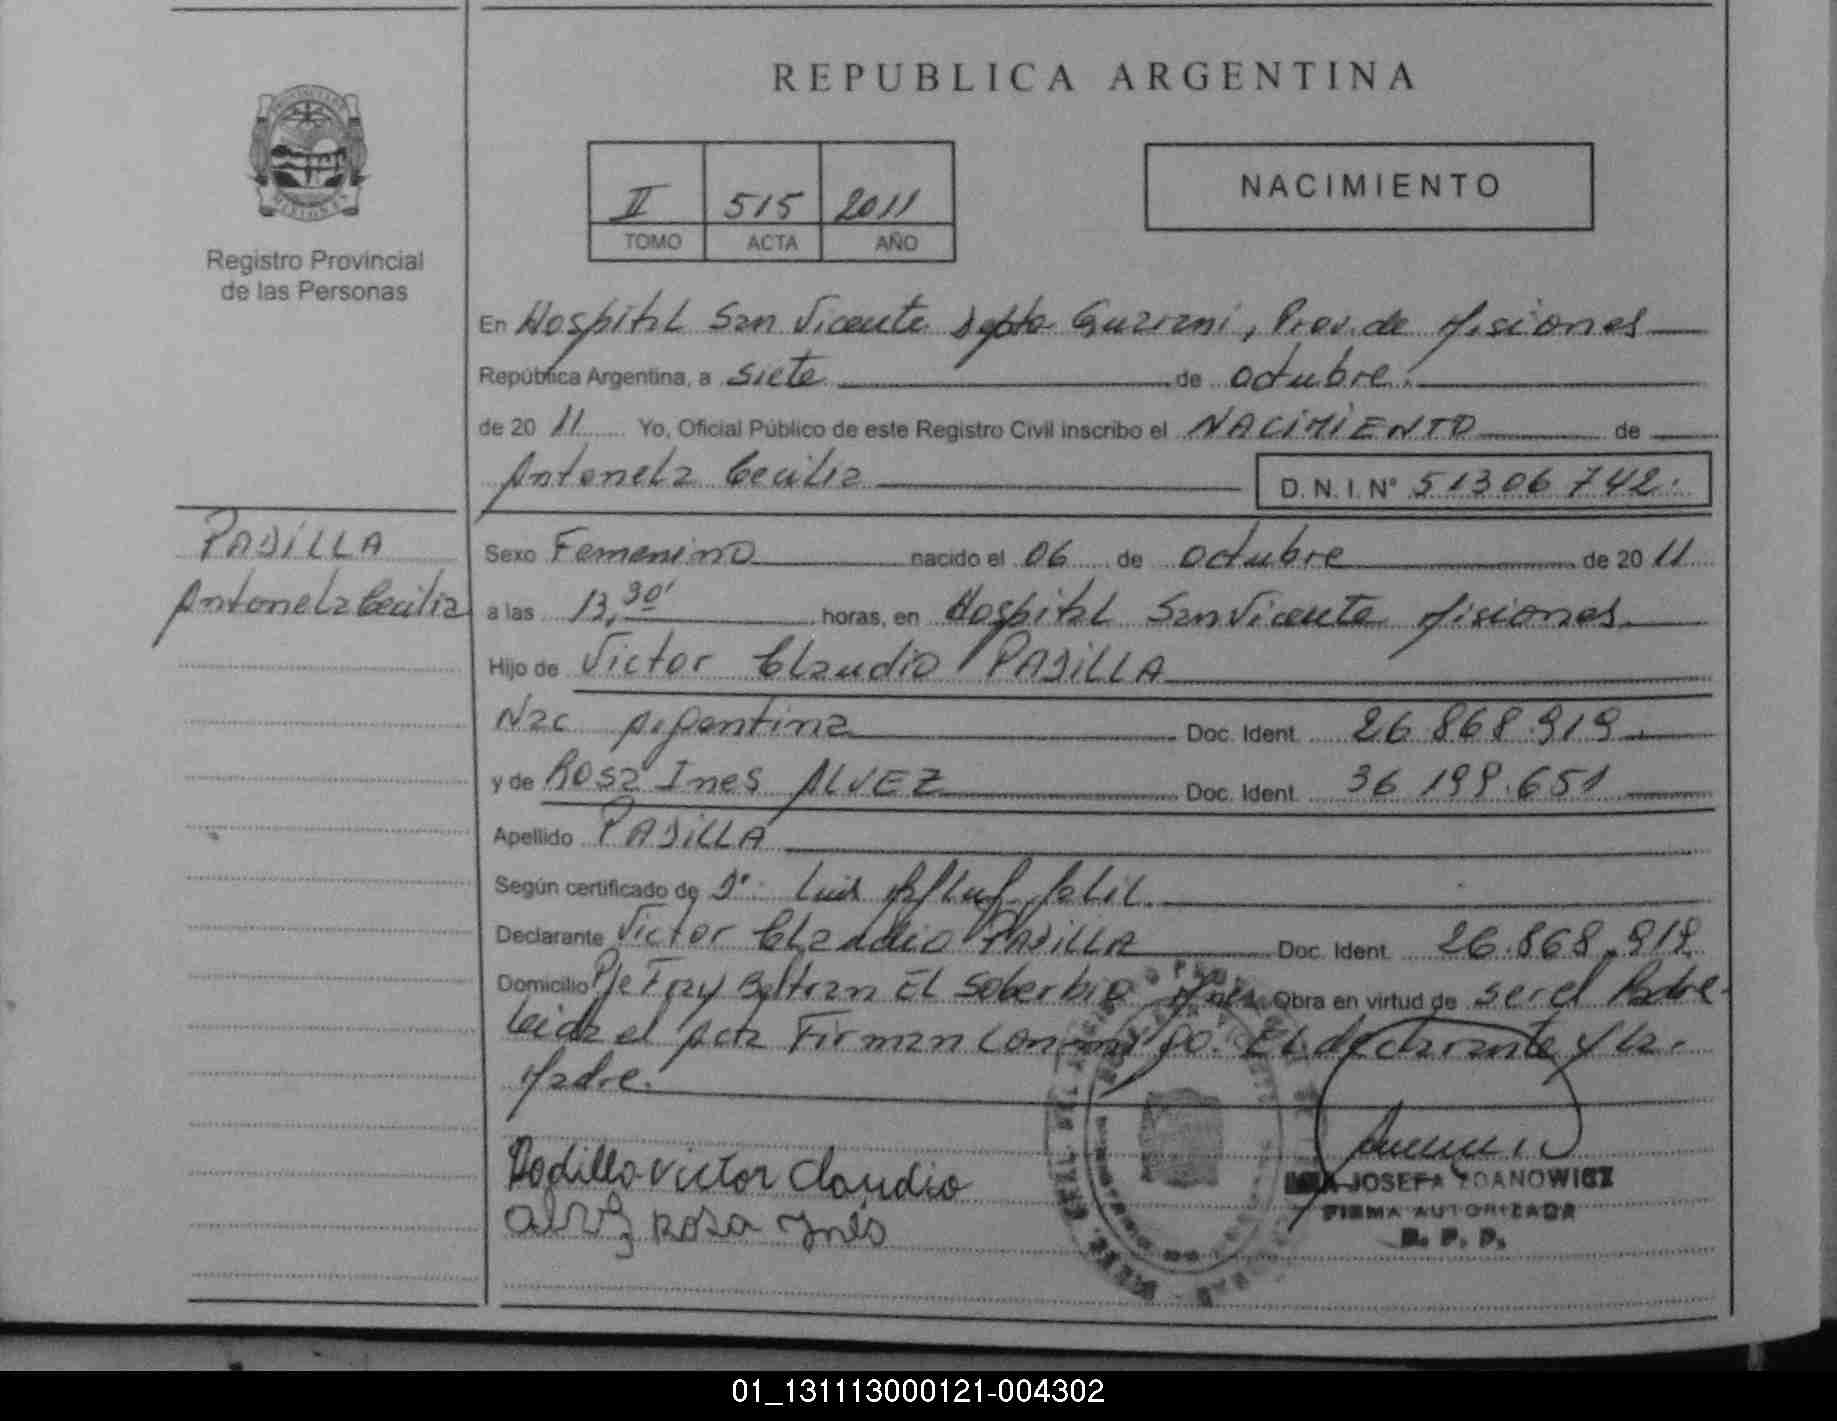 REPUBLICA ARGENTINA
PROVINCIA DE
MISIONES
Registro Provincial
de las Personas
II 515 2011
TOMO ACTA AÑO
NACIMIENTO
En Hospital San Vicente Depto Guarani, Prov. de Misiones
República Argentina, a siete de octubre.
de 20 11 Yo, Oficial Público de este Registro Civil inscribo el NACIMIENTO de
Antonela Cecilia D. N. I. N° 51306742.
PADILLA
Antonela Cecilia
Sexo Femenino nacido el 06 de octubre de 20 11
a las 13,30' horas, en Hospital San Vicente Misiones
Hijo de Victor Claudio PADILLA
Nac Argentina Doc. Ident. 26.868.919
y de Rosa Ines ALVEZ Doc. Ident. 36 199.651
Apellido PADILLA
Según certificado de Dr. Luis Jalil.
Declarante Victor Claudio PADILLA Doc. Ident. 26.868.919
Domicilio Pje Fray Beltran El Soberbio Mnes. Obra en virtud de ser el Padre.
Leida el Acta Firman conmigo. El declarante y la.
Madre.
Padilla Victor Claudio
Alvez Rosa Inés
JOSEFA ZDANOWICZ
FIRMA AUTORIZADA
R. P. P.
01_131113000121-004302